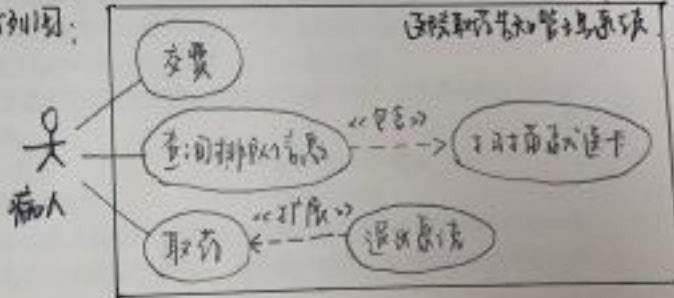 例图：
医院取药告知管理系统
交费
查询排队信息
<<包含>>
扫描就医卡
病人
取药
<<扩展>>
退出系统